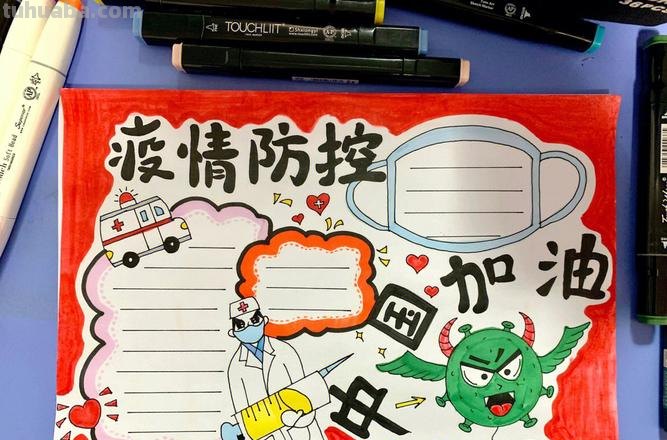 tuhuaba.com
TOUCHLIIT
疫情防控
中国加油